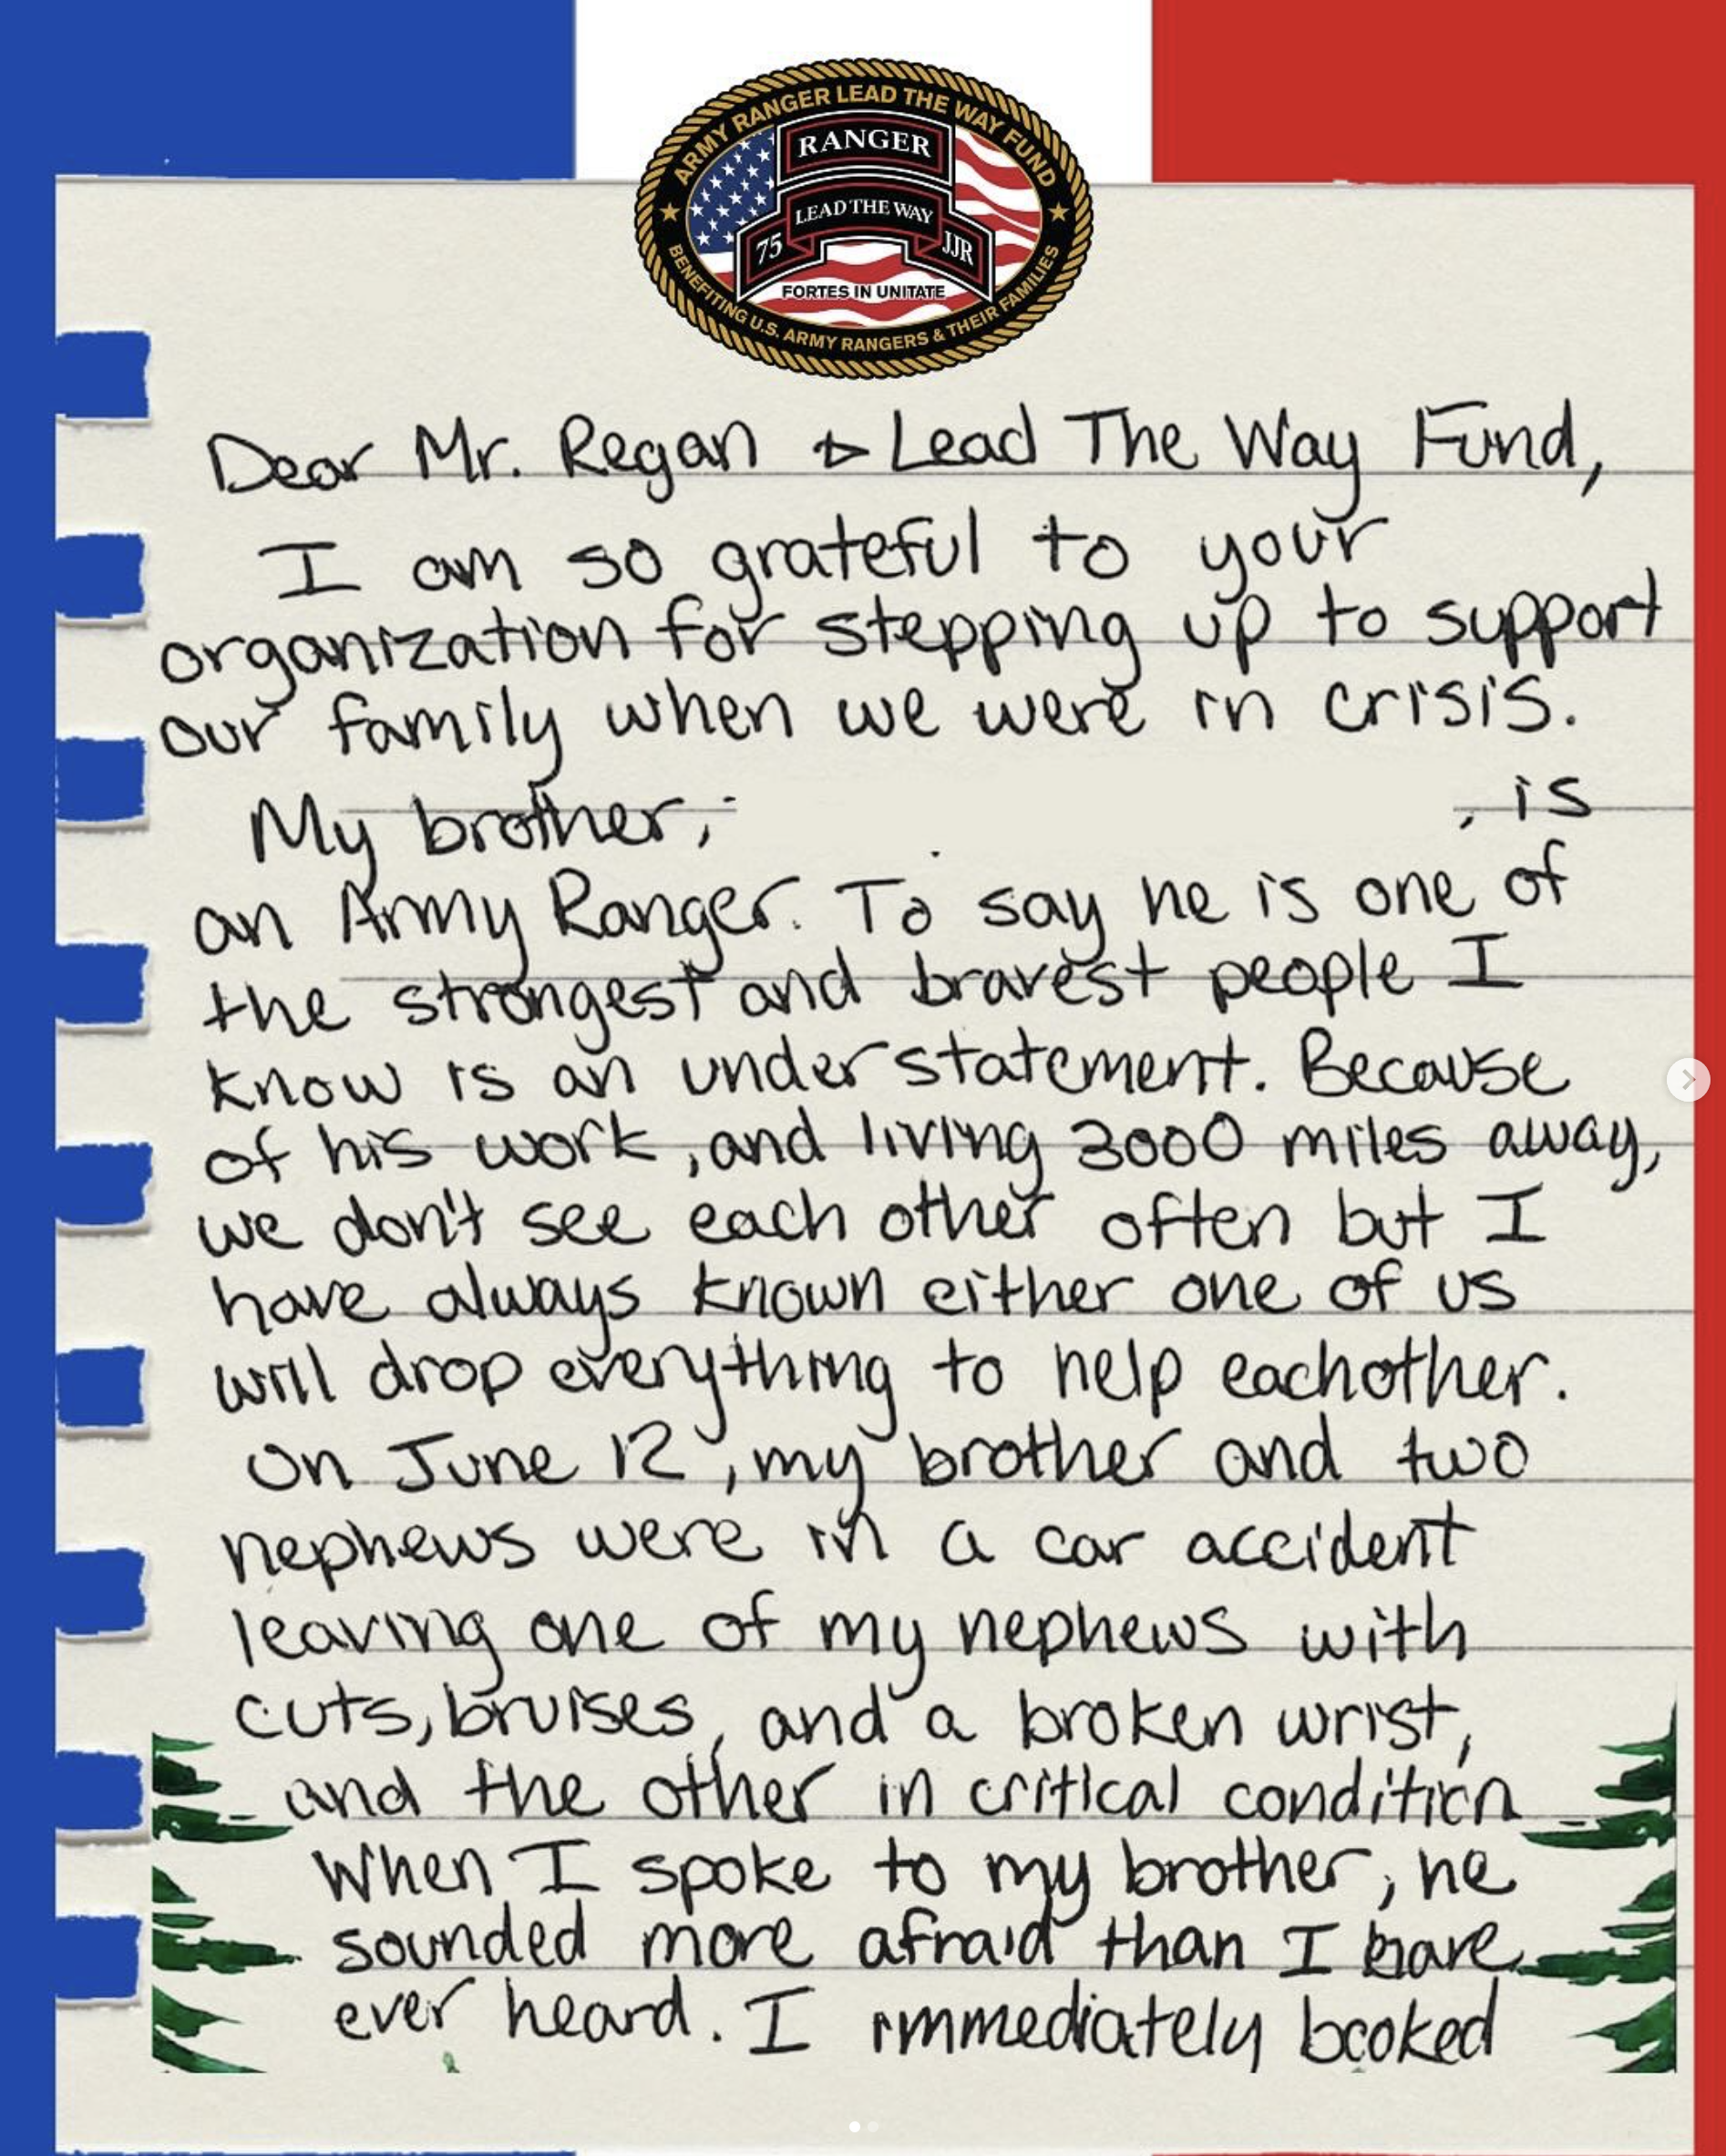 ARMY RANGER LEAD THE WAY FUND
RANGER
LEAD THE WAY
75 JJR
FORTES IN UNITATE
BENEFITING U.S. ARMY RANGERS & THEIR FAMILIES
Dear Mr. Regan & Lead The Way Fund,
I am so grateful to your
organization for stepping up to support
our family when we were in crisis.
My brother, , is
an Army Ranger. To say he is one of
the strongest and bravest people I
know is an understatement. Because
of his work, and living 3000 miles away,
we don't see each other often but I
have always known either one of us
will drop everything to help eachother.
On June 12, my brother and two
nephews were in a car accident
leaving one of my nephews with
cuts, bruises, and a broken wrist,
and the other in critical condition
When I spoke to my brother, he
sounded more afraid than I have
ever heard. I immediately booked